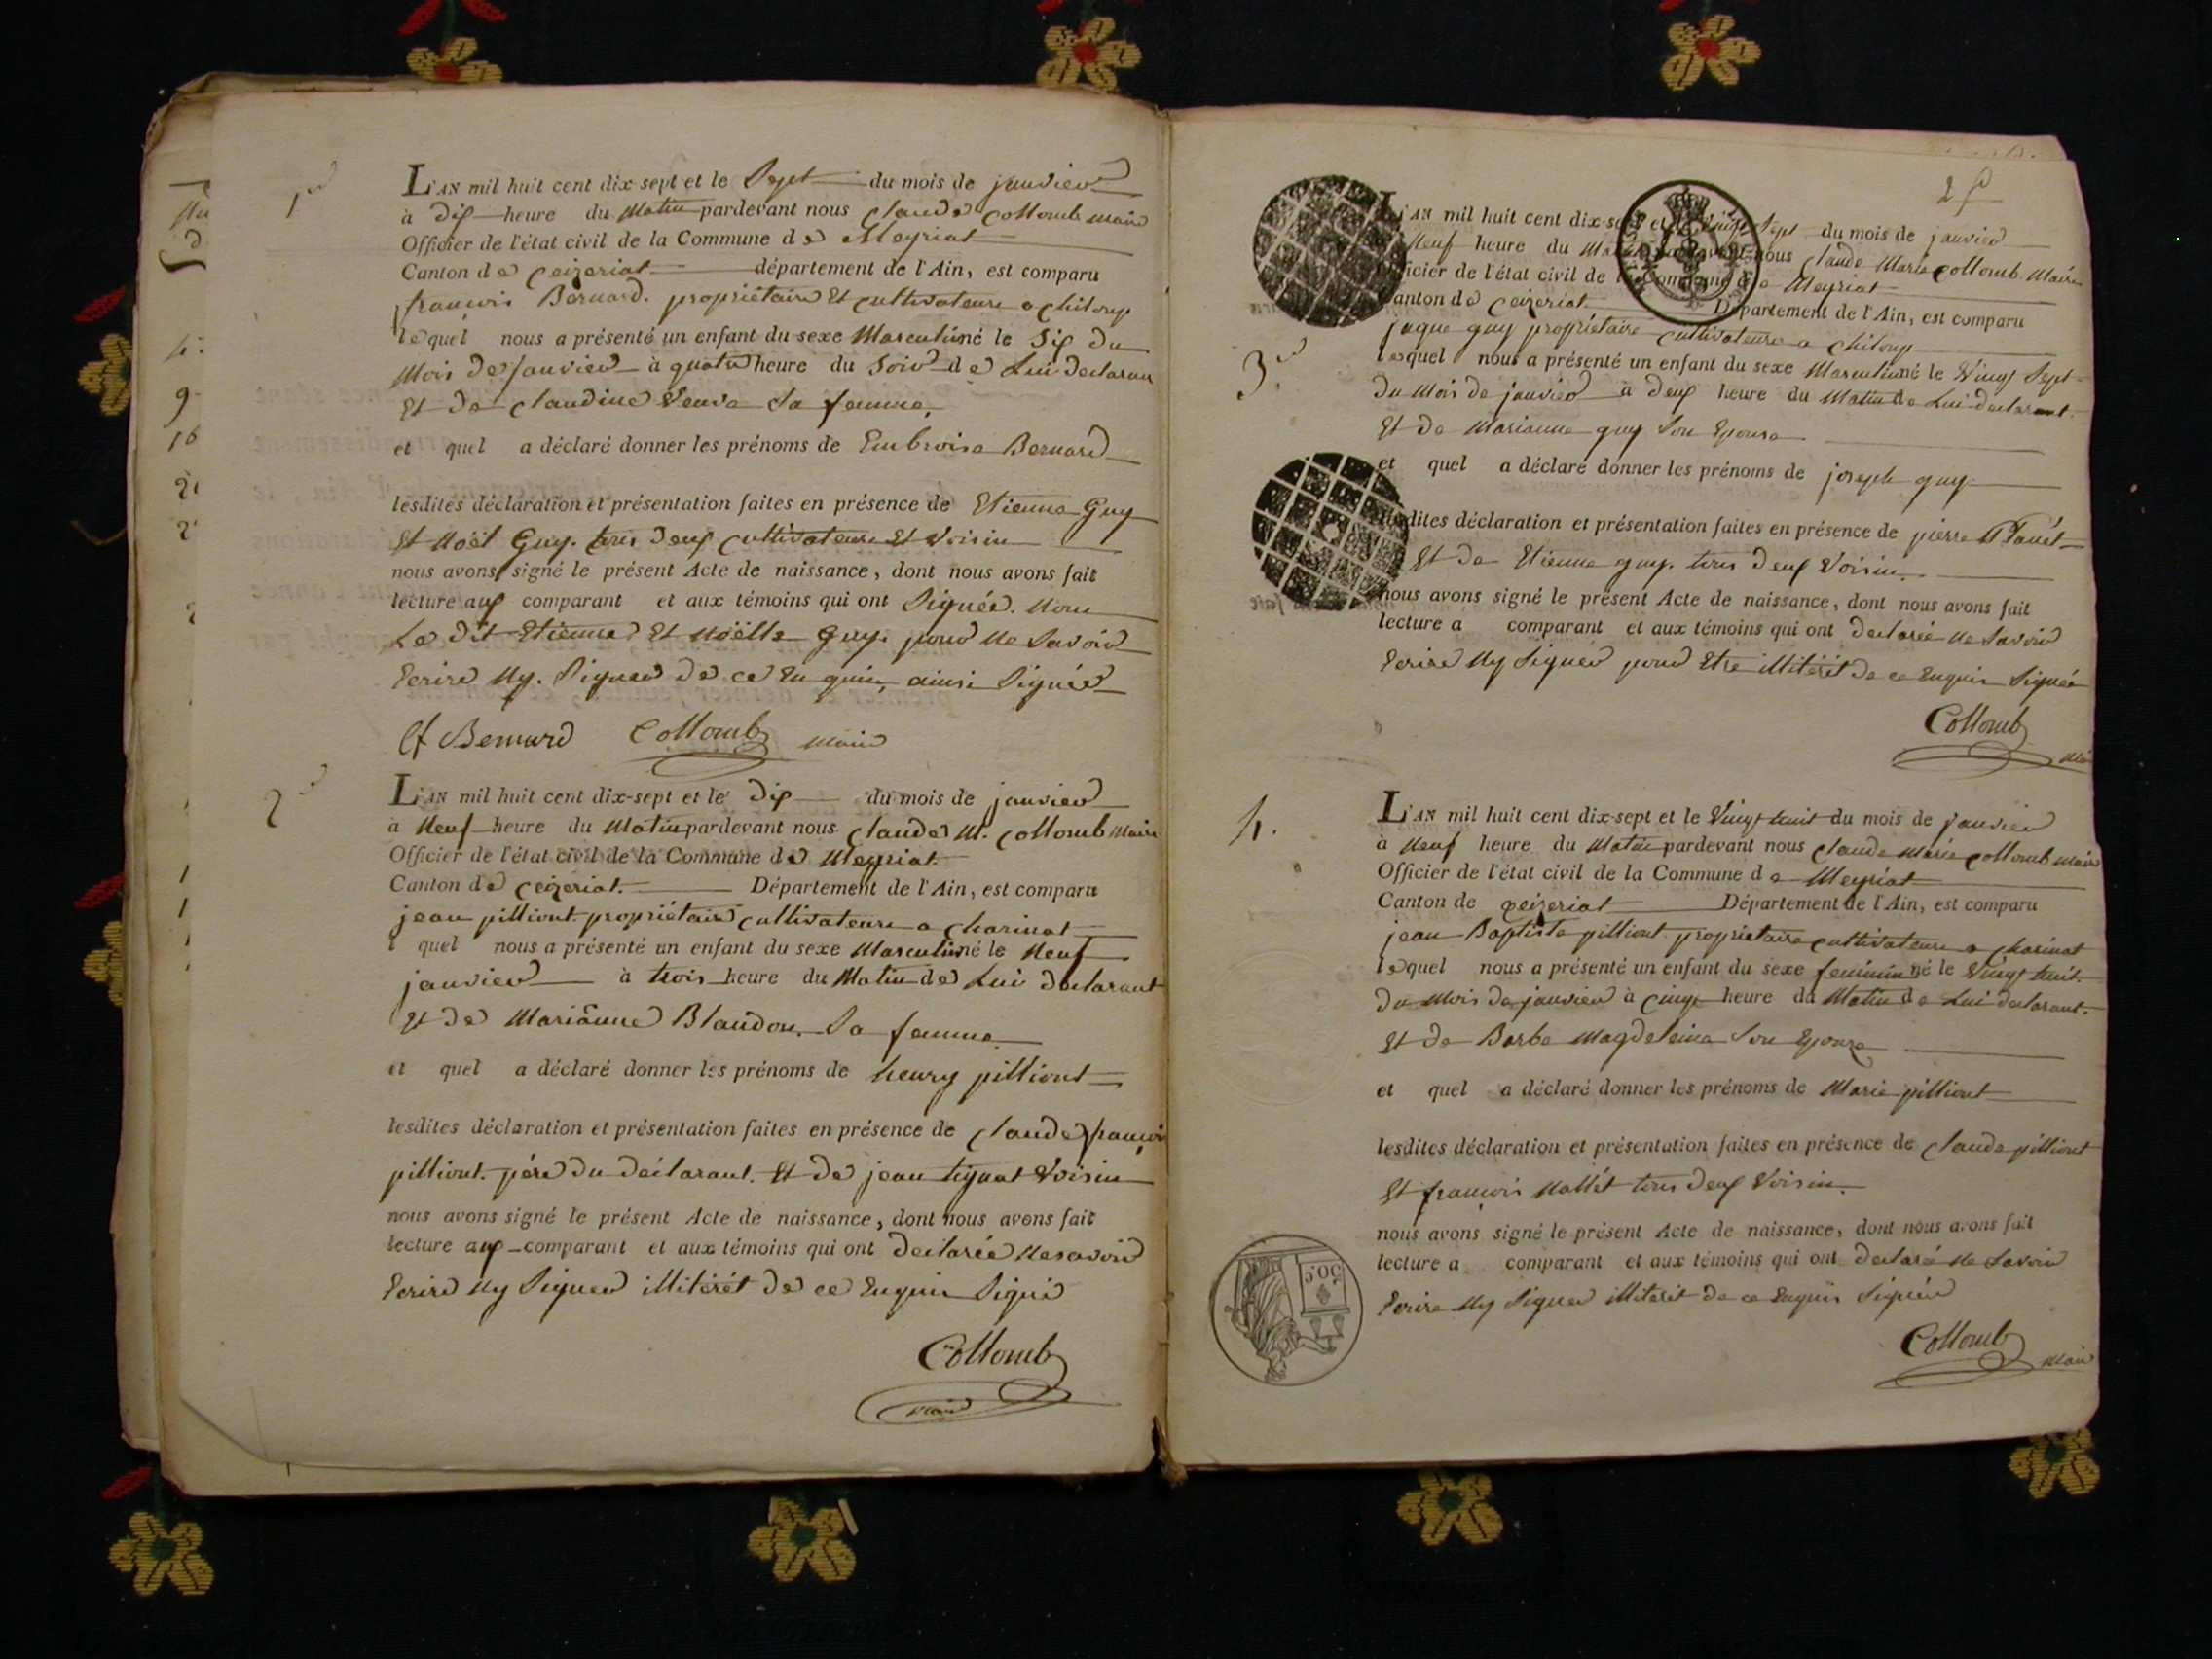 1er
L'AN mil huit cent dix-sept et le Sept du mois de janvier
à dix heure du Matin pardevant nous Claude Collomb maire
Officier de l'état civil de la Commune de Meyriat
Canton de Ceizeriat département de l'Ain, est comparu
françois Bernard. propriétaire Et cultivateure a chiloup
lequel nous a présenté un enfant du sexe Masculin né le Six du
Mois de Janvier à quatre heure du Soir de Lui declarant
Et de Claudine Veuve Sa femme,
et quel a déclaré donner les prénoms de Embroise Bernard
lesdites déclaration et présentation faites en présence de Etienne Guy
Et Noël Guy. tous deux Cultivateure Et Voisin
nous avons signé le présent Acte de naissance, dont nous avons fait
lecture aux comparant et aux témoins qui ont Signée. Non
Le dit Etienne Et Noëlle Guy. pour Ne Savoir
Ecrire Ny. Signer de ce Enquis, ainsi Signée
Bernard Collomb maire
2
L'AN mil huit cent dix-sept et le dix du mois de janvier
à Neuf heure du Matin pardevant nous Claude M. Collomb Maire
Officier de l'état civil de la Commune de Meyriat.
Canton de Ceizeriat. Département de l'Ain, est comparu
jean pilliont propriétaire cultivateure a Charinat
l quel nous a présenté un enfant du sexe Masculin né le Neuf
janvier à trois heure du Matin de Lui declarant
Et de Marianne Blandon. Sa femme
et quel a déclaré donner les prénoms de henry pilliont
lesdites déclaration et présentation faites en présence de Claude françois
pilliont. pére du declarant. Et de jean tignat Voisin
nous avons signé le présent Acte de naissance, dont nous avons fait
lecture aux comparant et aux témoins qui ont declarée Ne savoir
Ecrire Ny Signer illitérét de ce Enquis Signé
Collomb
maire
2
3e
L'AN mil huit cent dix-sept et le Vingt Sept du mois de janvier
Neuf heure du Matin pardevant nous Claude Marie Collomb Maire
Officier de l'état civil de la Commune de Meyriat
Canton de Ceizeriat Département de l'Ain, est comparu
jaque guy propriétaire Cultivateure a chiloup
lequel nous a présenté un enfant du sexe Masculin né le Vingt Sept
du Mois de janvier à deux heure du Matin de Lui declarant.
Et de Marianne guy Son Epouse
et quel a déclaré donner les prénoms de joseph guy
lesdites déclaration et présentation faites en présence de pierre
Et de Etienne guy. tous deux Voisin.
nous avons signé le présent Acte de naissance, dont nous avons fait
lecture a comparant et aux témoins qui ont declarée Ne Savoir
Ecrire Ny Signer pour Etre illitérét de ce Enquis Signée
Collomb
4.
L'AN mil huit cent dix-sept et le Vingt huit du mois de janvier
à Neuf heure du Matin pardevant nous Claude Marie Collomb maire
Officier de l'état civil de la Commune de Meyriat
Canton de Ceizeriat Département de l'Ain, est comparu
jean Baptiste pilliont propriétaire cultivateure a Charinat
lequel nous a présenté un enfant du sexe feminin né le Vingt huit.
du Mois de janvier à Cinq heure du Matin de Lui declarant.
Et de Barbe Magdeleine Son Epouze
et quel a déclaré donner les prénoms de Marie pilliont
lesdites déclaration et présentation faites en présence de Claude pilliont
Et françois Mallét tous deux Voisin.
nous avons signé le présent Acte de naissance, dont nous avons fait
lecture a comparant et aux témoins qui ont declaré Ne Savoir
Ecrire Ny Signer illitérét de ce Enquis Signée
50.C
Collomb
Maire